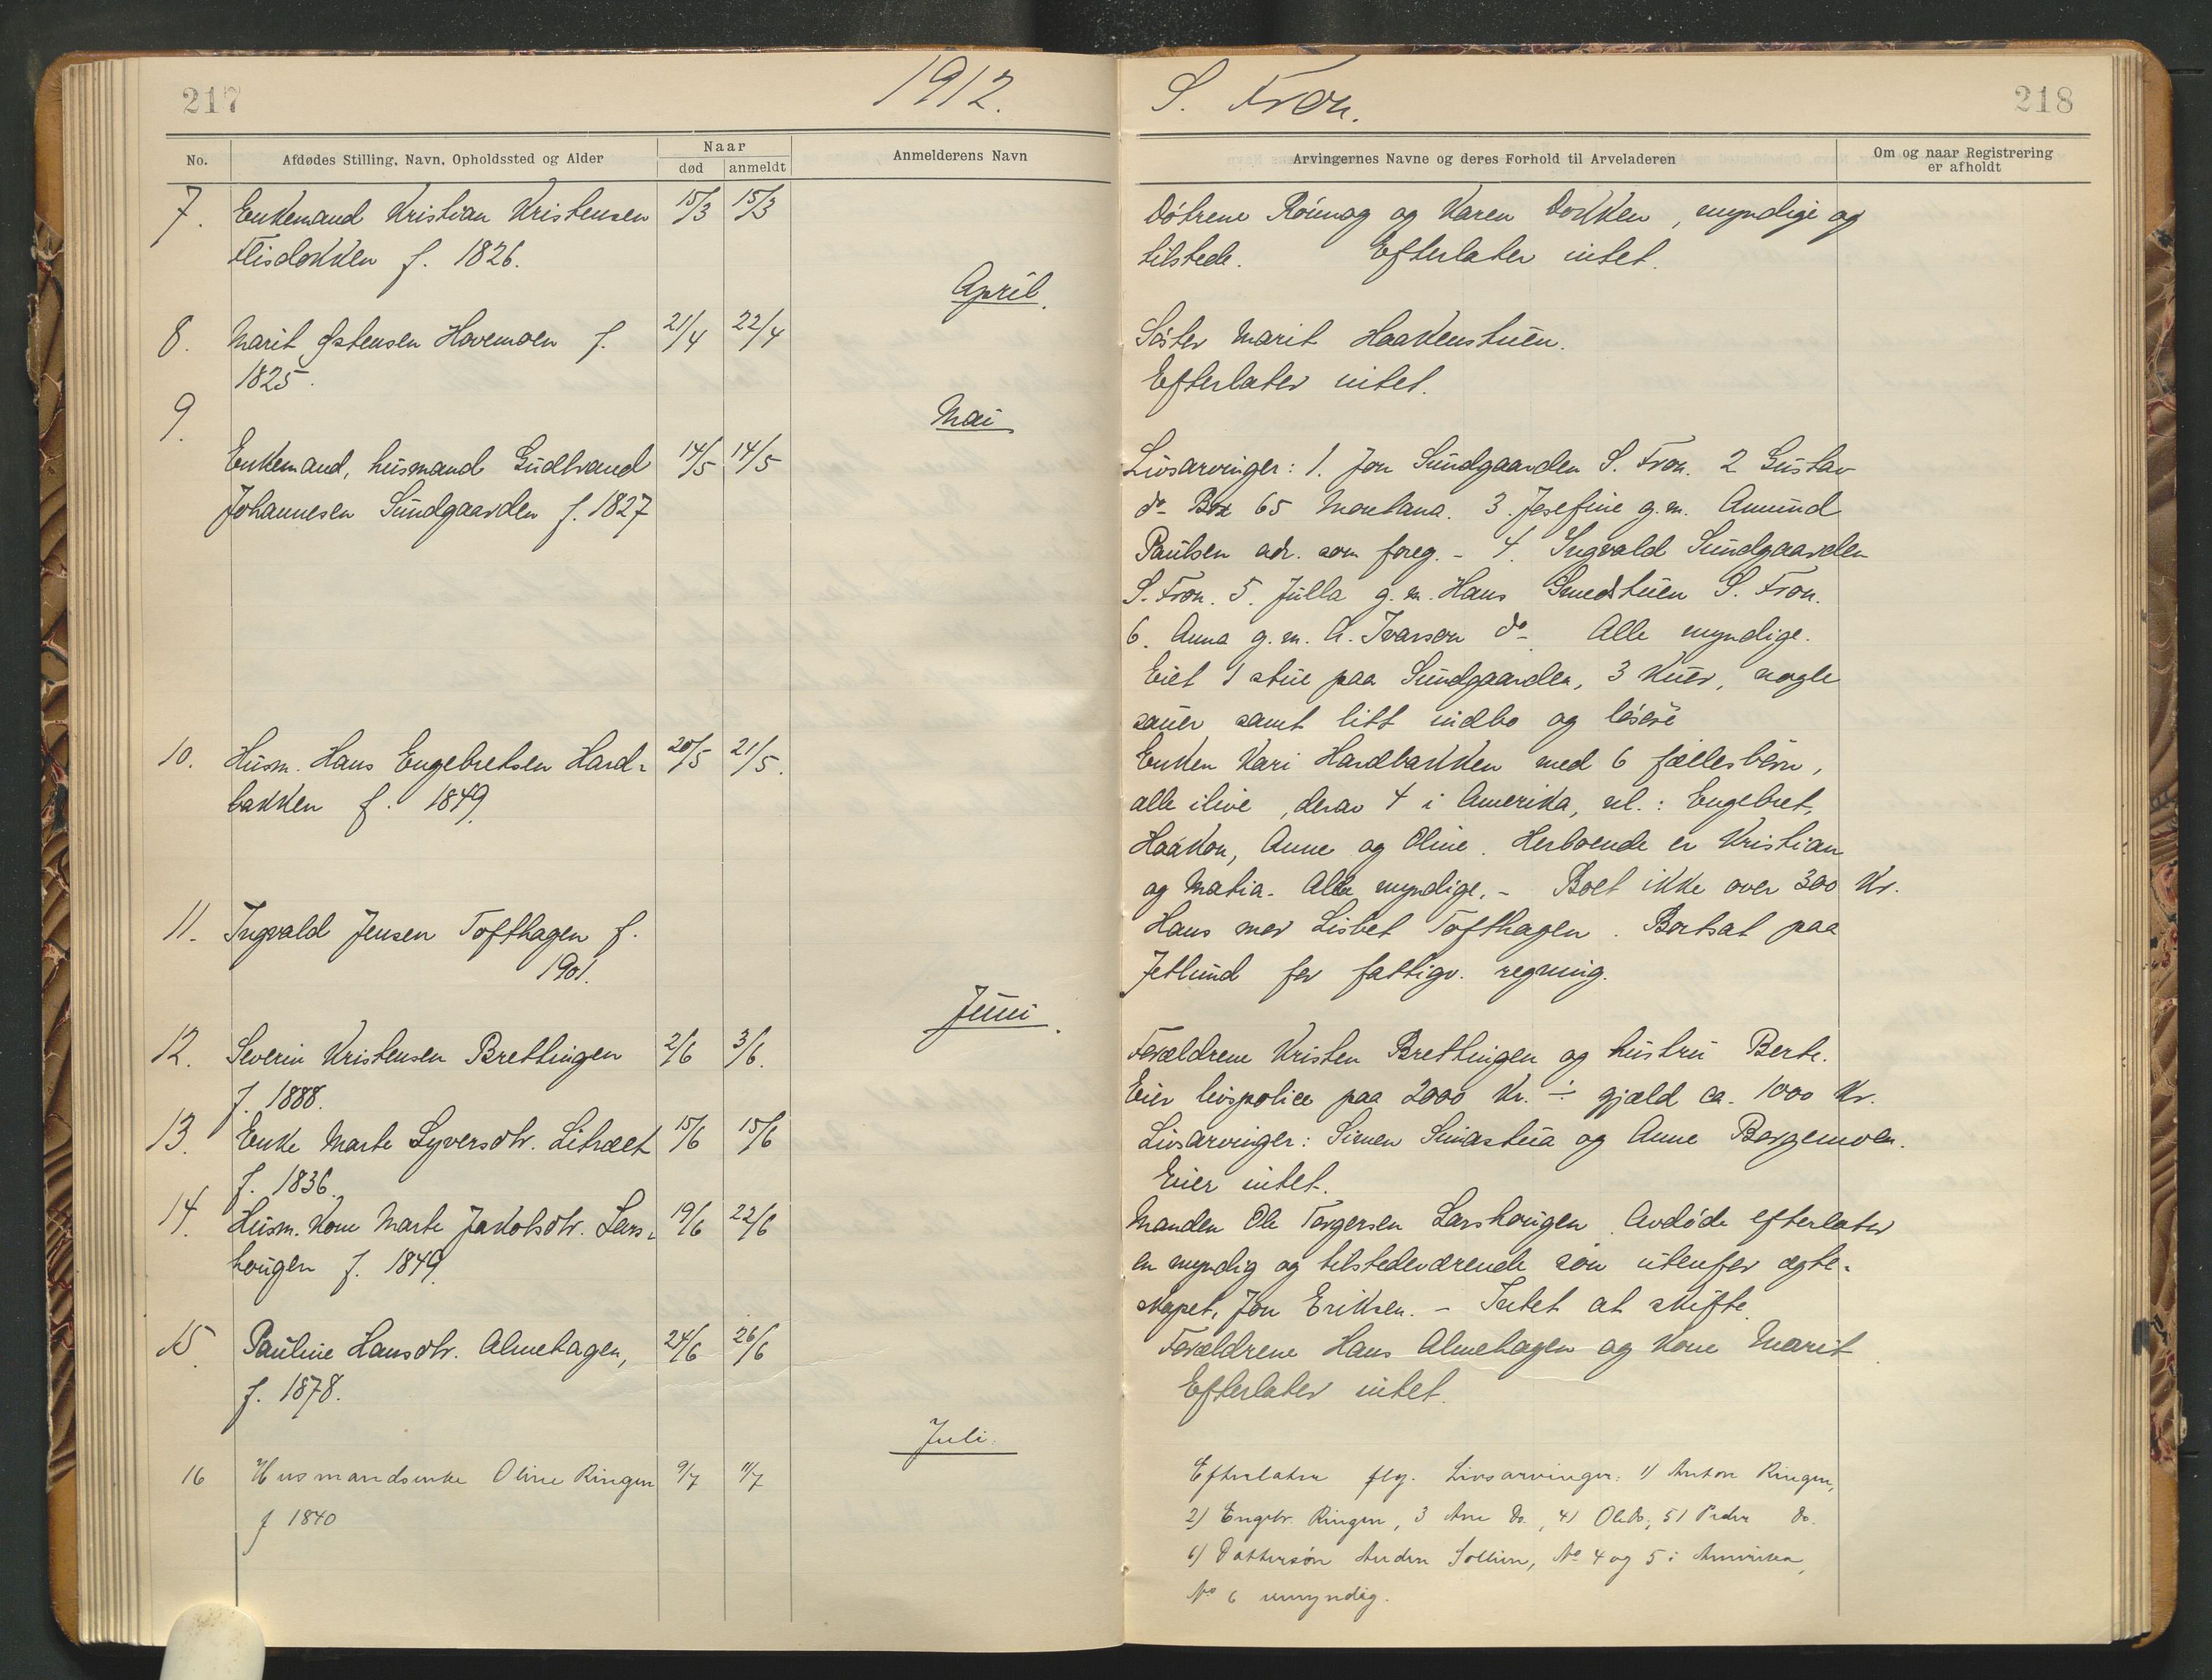 217
1912.
S. Fron.
218
No.
Afdødes Stilling, Navn, Opholdssted og Alder
Naar
død
anmeldt
Anmelderens Navn
Arvingernes Navne og deres Forhold til Arveladeren
Om og naar Registrering
er afholdt
7. Enkemand Kristian Kristensen 15/3 15/3
Flisdokken f. 1826.
Døtrene Rönnog og Karen Dokken, myndige og
tilstede. Efterlater intet.
April.
8. Marit Østensen Hovemoen f. 21/4 22/4
1825.
Søster Marit Haakenstuen.
Efterlater intet.
9.
Mai
Enkemand, husmand Gudbrand 14/5 14/5
Johannesen Sundgaarden f. 1827
Livsarvinger: 1. Jon Sundgaarden S. Fron. 2 Gustav
do Box 65 Montana. 3. Josefine g.m. Amund
Paulsen adr. som foreg. - 4. Ingvald Sundgaarden
S. Fron. 5. Julla g.m. Hans Smedstuen S. Fron.
6. Anna g.m. A. Ivarson do. Alle myndige.
Eiet 1 stue paa Sundgaarden, 3 kuer, nogle
sauer samt litt indbo og løsøre
10. Husm. Hans Engebretsen Hard- 20/5 21/5.
bakken f. 1849.
Enken Kari Hardbakken med 6 fællesbörn,
alle ilive, derav 4 i Amerika, nl.: Engebret,
Haakon, Anne og Oline. Herboende er Kristian
og Matia. Alle myndige. - Boet ikke over 300 Kr.
11. Ingvald Jensen Tofthagen f.
1901.
Hans mor Lisbet Tofthagen. Bortsat paa
Jetlund for fattigv. regning.
Juni.
12. Severin Kristensen Brettingen 2/6 3/6.
f. 1888.
Forældrene Kristen Brettingen og hustru Berte.
Eier livspolice paa 2000 Kr. ÷ gjæld ca. 1000 Kr.
13. Enke Marte Syversdtr. Litræet 15/6 15/6
f. 1836.
Livsarvinger: Simen Simastua og Anne Borgemoen.
Eier intet.
14. Husm. Kone Marte Jakobsdtr. Lars- 19/6 22/6
hougen f. 1849.
Manden Ole Torgersen Larshougen. Avdøde efterlater
en myndig og tilstedeværende sön utenfor egte-
skapet, Jon Eriksen. - Intet at skifte.
15. Pauline Hansdtr. Almehagen, 24/6 26/6
f. 1878.
Forældrene Hans Almehagen og Kone Marit.
Efterlater intet.
Juli.
16 Husmandsenke Oline Ringen 9/7 11/7
f 1840
Efterlater flg. Livsarvinger: 1) Anton Ringen,
2) Engebr. Ringen, 3 Ane Do., 4) Ole Do., 5) Peder Do.
6) Dattersøn Anders Sollien, No 4 og 5 i Amerika,
No 6 umyndig.